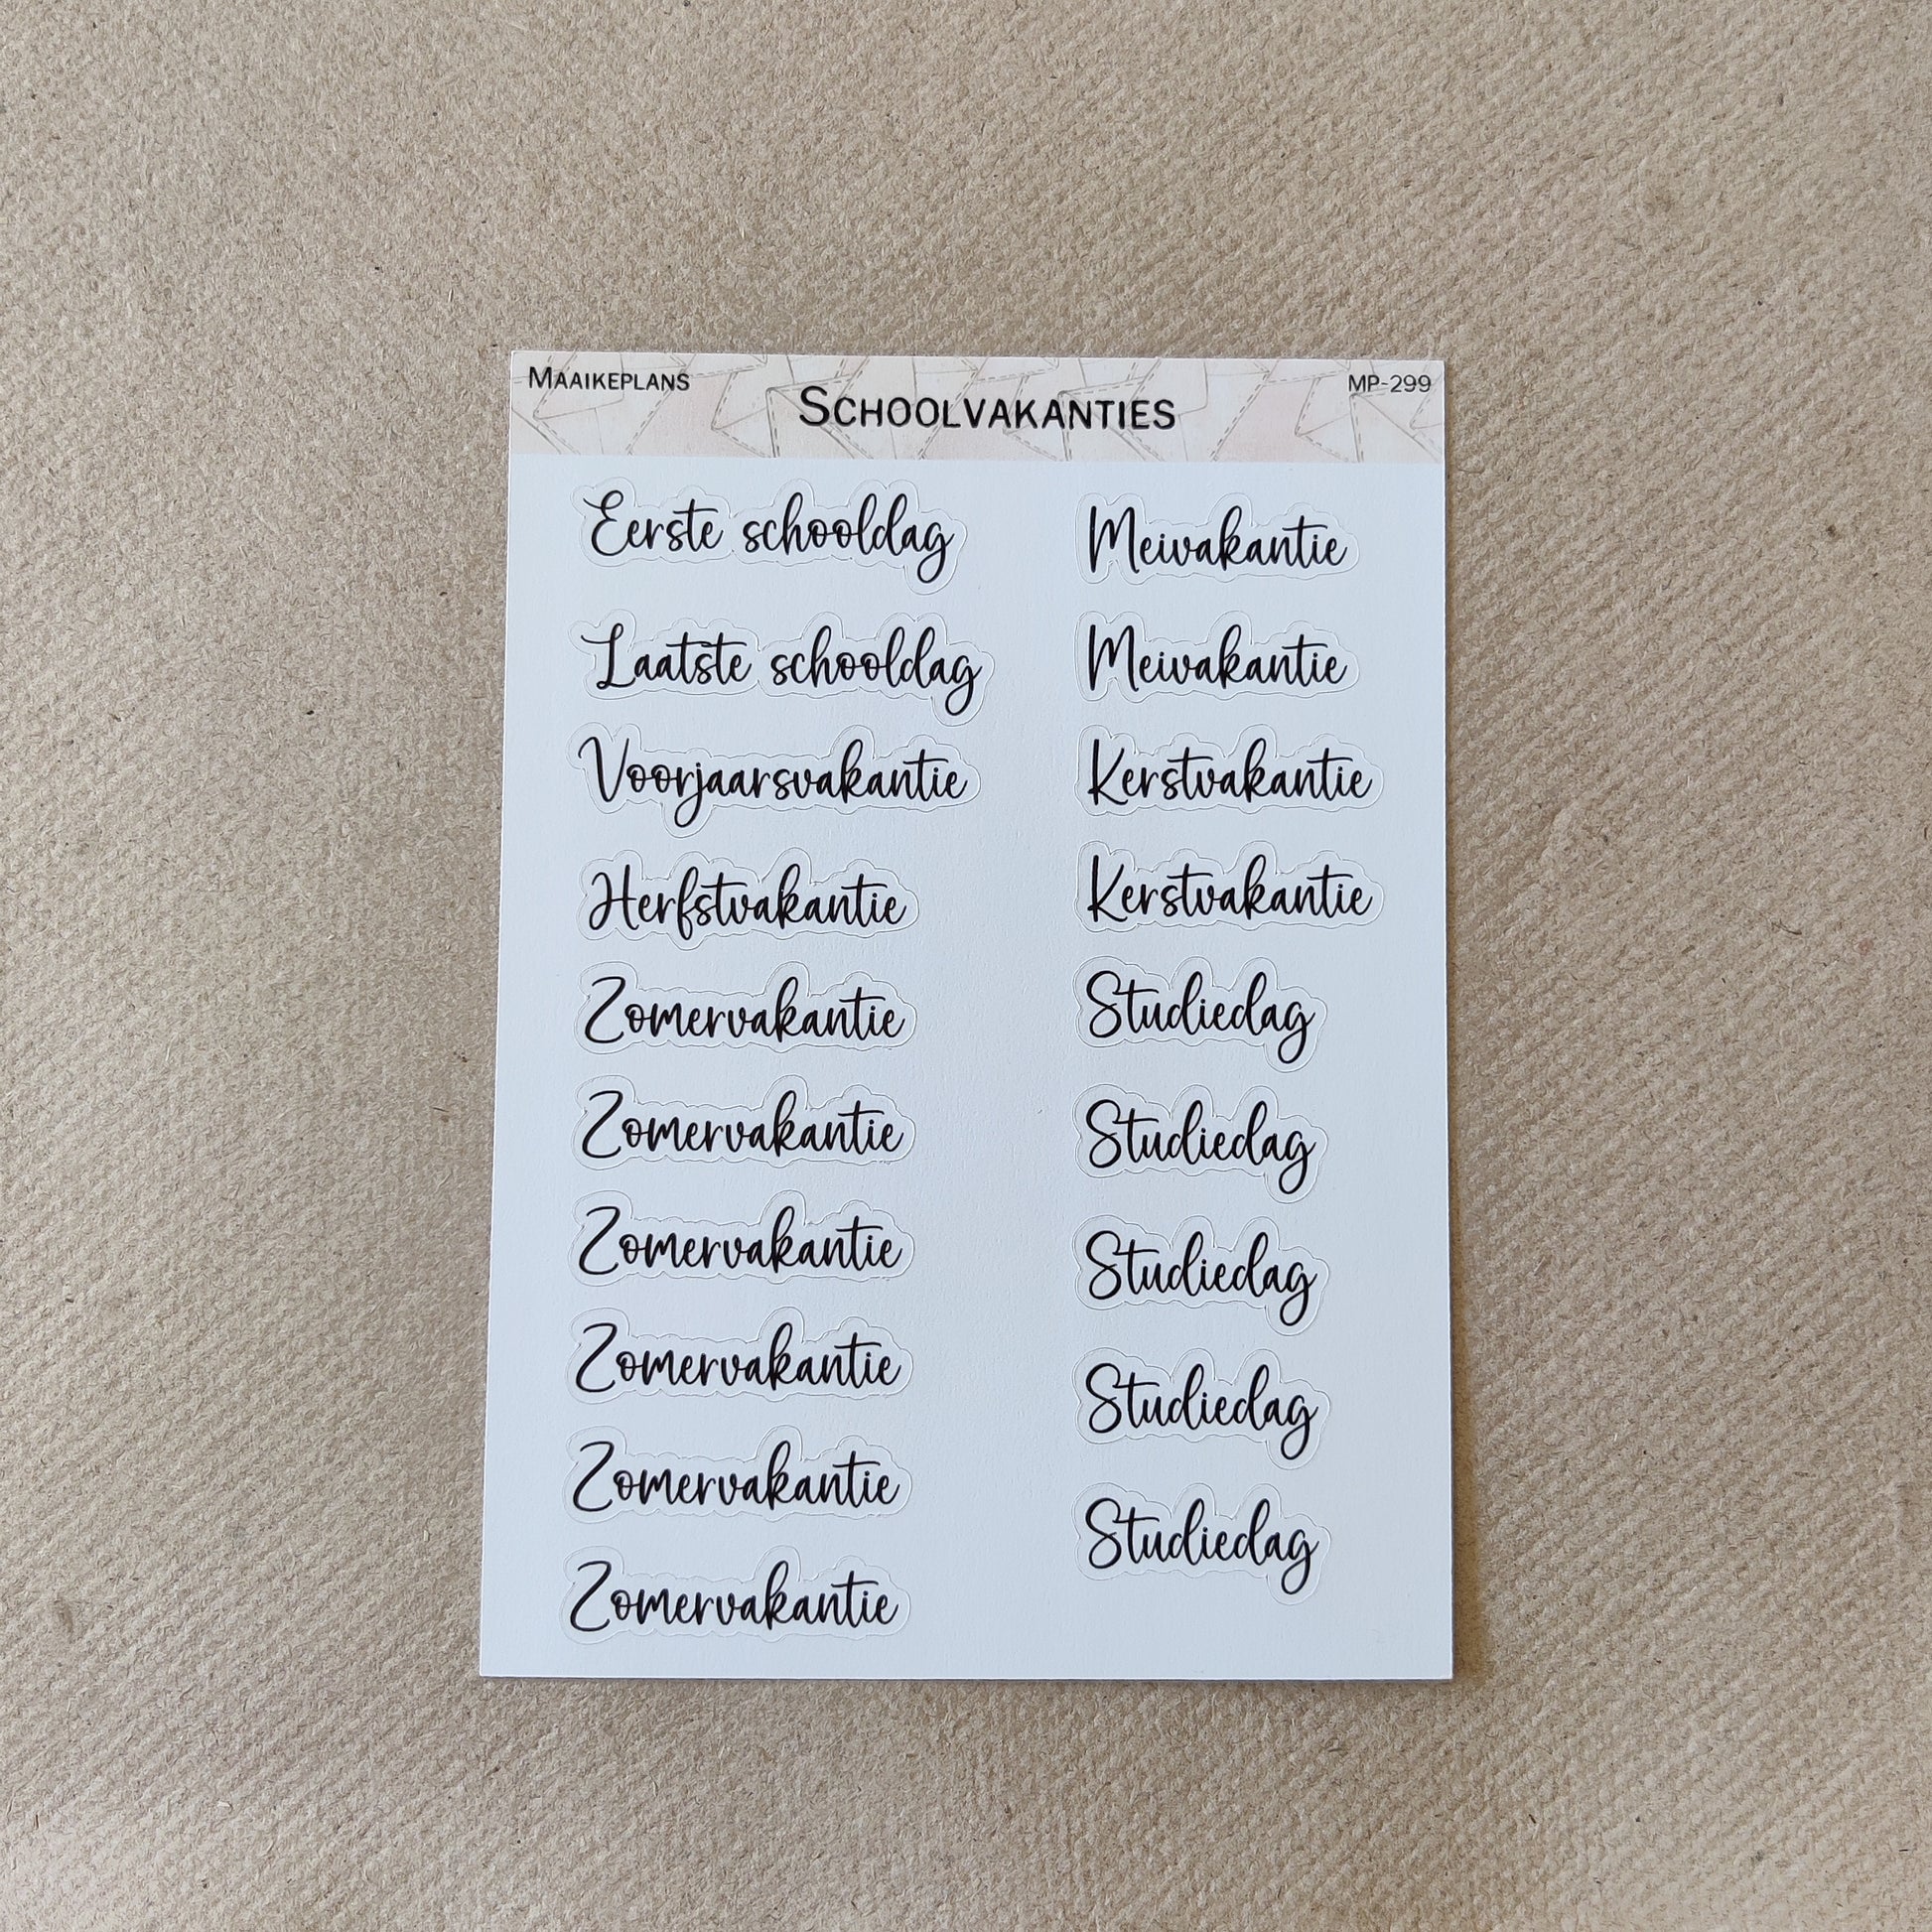 MAAIKEPLANS
SCHOOLVAKANTIES
MP-299
Eerste schooldag
Laatste schooldag
Voorjaarsvakantie
Herfstvakantie
Zomervakantie
Zomervakantie
Zomervakantie
Zomervakantie
Zomervakantie
Zomervakantie
Meivakantie
Meivakantie
Kerstvakantie
Kerstvakantie
Studiedag
Studiedag
Studiedag
Studiedag
Studiedag